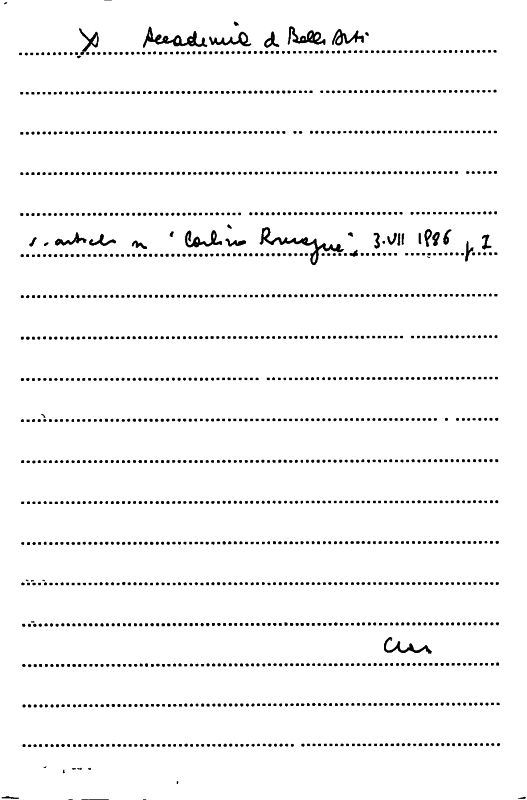 X Accademia d Belle Arti
v. articolo in "Carlino Romagna", 3.VII 1986 p. I